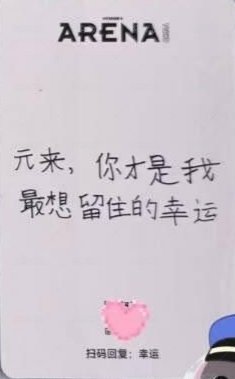 ARENA
元来，你才是我
最想留住的幸运
扫码回复：幸运